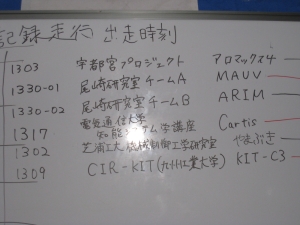 記録走行 出走時刻
1303 宇都宮プロジェクト アロマックス4
1330-01 尾崎研究室 チームA MAUV
1330-02 尾崎研究室 チームB ARIM
1317 電気通信大学 知能システム学講座 Cartis
1302 芝浦工大 機械制御工学研究室 やまぶき
1309 CIR-KIT(九州工業大学) KIT-C3